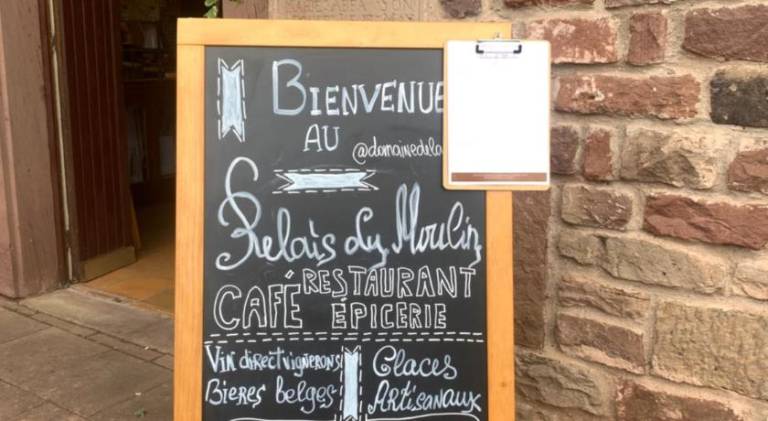 BIENVENUE
AU
@domainedela
Relais du Moulin
CAFÉ RESTAURANT
ÉPICERIE
Vin direct vignerons
Bieres belges
Glaces
Artisanaux